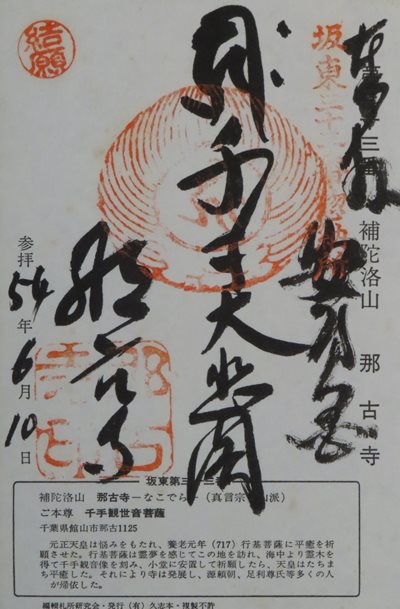 結願
坂東三十三
補陀洛山 那古寺
奉拝
千手大悲閣
那古寺
参拝
54年6月10日
坂東第三十三番
補陀洛山 那古寺 ―なこでら― (真言宗 山派)
ご本尊 千手観世音菩薩
千葉県館山市那古1125
元正天皇は悩みをもたれ、養老元年(717)行基菩薩に平癒を祈
願させた。行基菩薩は霊夢を感じてこの地を訪れ、海中より霊木を
得て千手観音像を刻み、小堂に安置して祈願したら、天皇はたちま
ち平癒した。それにより寺は発展し、源頼朝、足利尊氏等多くの人
が帰依した。
編輯札所研究会・発行(有)久志本・複製不許